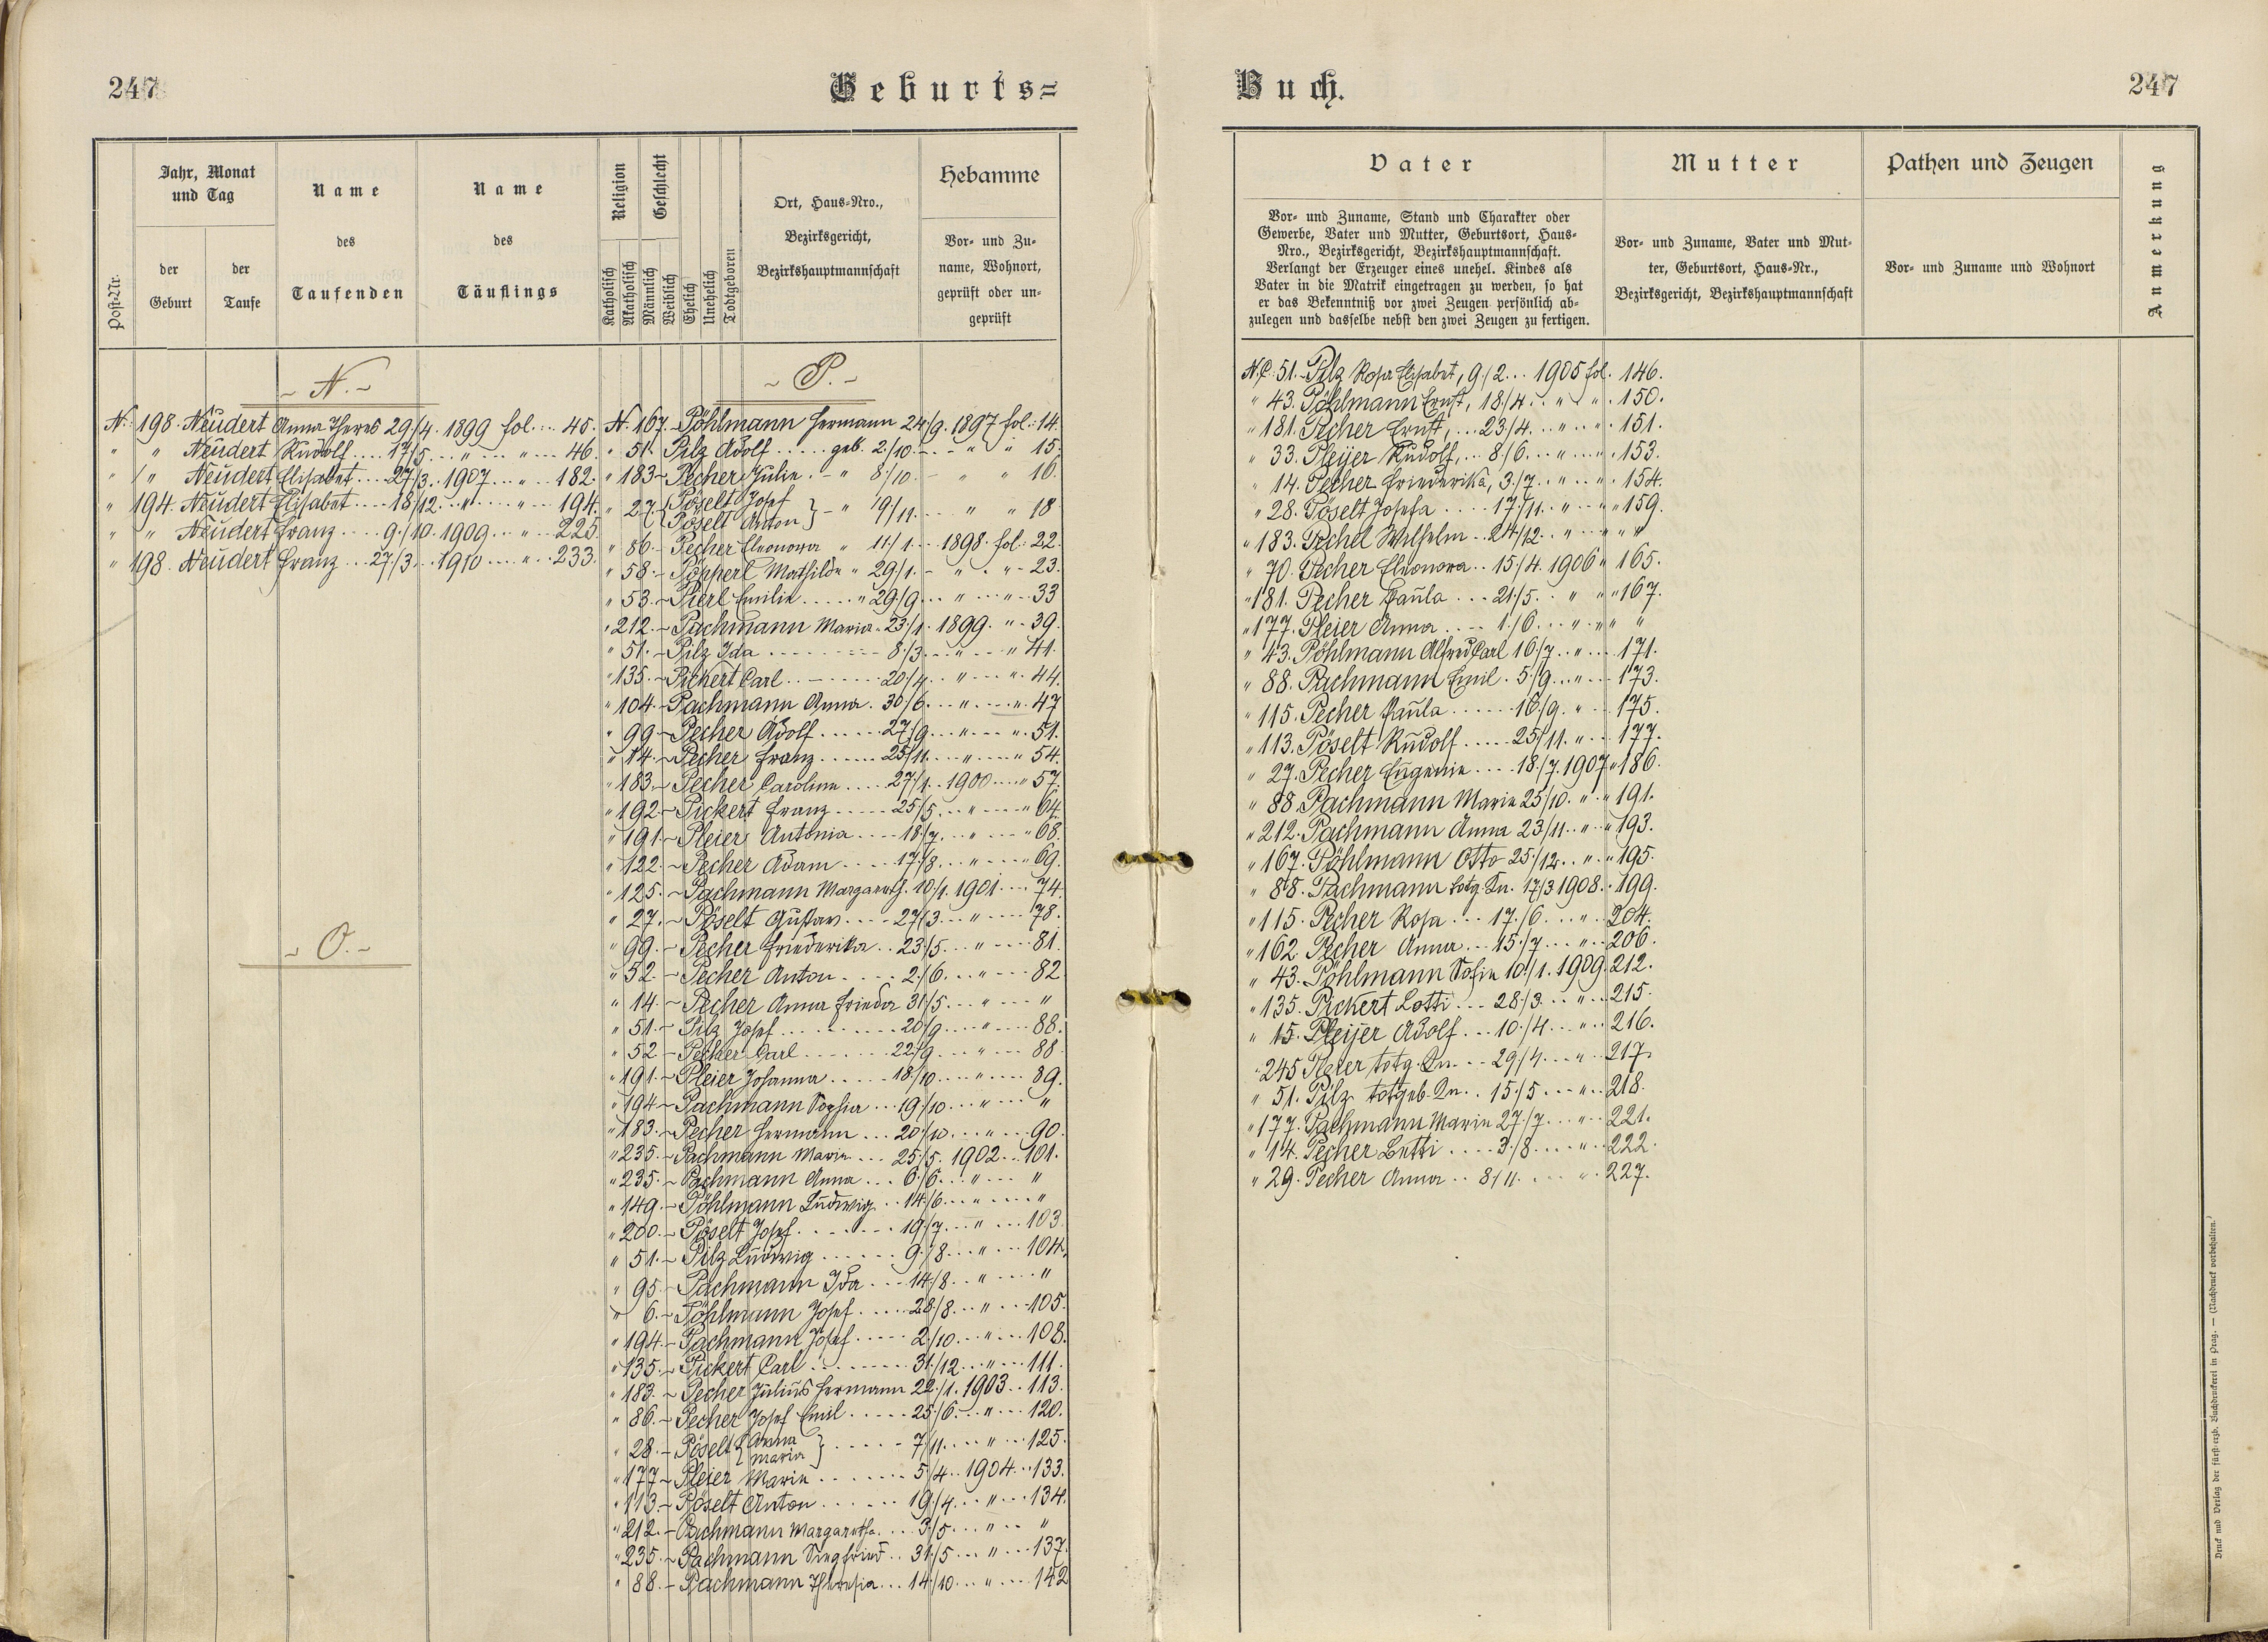 247
Geburts=
Jahr, Monat
und Tag
Name
des
Taufenden
Name
des
Täuflings
Religion
Geschlecht
Ort, Haus=Nro.,
Bezirksgericht,
Bezirkshauptmannschaft
Hebamme
Post-Nr.
der
Geburt
der
Taufe
Katholisch
Akatholisch
Männlich
Weiblich
Ehelich
Unehelich
Todtgeboren
Vor= und Zu=
name, Wohnort,
geprüft oder un=
geprüft
~ N. ~
N. 198. Neudert Anna Theres 29./4. 1899 fol. 45.
" " Neudert Rudolf 17/5. " " 46.
" " Neudert Elisabet 27/3. 1907 " 182.
" 194. Neudert Elisabet 18/12. " " 194.
" " Neudert Franz 9./10. 1909 " 225.
" 198. Neudert Franz 27/3. 1910 " 233.
~ O. ~
~ P. ~
N. 167. Pöhlmann Hermann 24/9. 1897 fol. 14.
" 51. Pilz Adolf geb. 2./10. " " 15.
" 183 Pecher Julie " 8/10. " " 16.
" 27. { Pöselt Josef
Pöselt Anton } " 19/11. " " 18
" 86. Pecher Eleonora " 11/1. 1898. fol. 22.
" 58. Popperl Mathilde " 29/1. " " 23.
" 53. Pierl Emilie " 29/9. " " 33
" 212. Pachmann Maria 23/1. 1899. " 39.
" 51. Pilz Ida 8/3. " " 41.
" 135. Pickert Carl 20/4. " " 44.
" 104. Pachmann Anna. 30/6. " " 47
" 99 Pecher Adolf 27/9. " " 51.
" 14. Pecher Franz 25/11. " " 54.
" 183. Pecher Caroline 27/1. 1900 " 57.
" 192. Pickert Franz 25/5. " " 64.
" 191. Pleier Antonia 18/7. " " 68.
" 122. Pecher Adam 17/8. " " 69.
" 125. Pachmann Margareth. 10/1. 1901. 74.
" 27. Pöselt Gustav 27/3. " 78.
" 99. Pecher Friederika 23/5. " 81.
" 52. Pecher Anton 2/6. " 82
" 14. Pecher Anna Frieda 31/5. " "
" 51. Pilz Josef 20/9. " 88.
" 52 Pecher Carl 22/9. " 88
" 191. Pleier Johanna 18/10. " 89.
" 194 Pachmann Sophia 19/10. " "
" 183. Pecher Hermann 20/10. " 90.
" 235. Pachmann Marie 25/5. 1902 101.
" 235. Pachmann Anna 6/6. " "
" 149. Pöhlmann Ludwig 14/6. " "
" 200. Pöselt Josef 19/7. " 103.
" 51. Pilz Ludwig 9./8. " 104.
" 95. Pachmann Ida 14/8. " "
" 6. Pöhlmann Josef 28/8. " 105.
" 194. Pachmann Josef 2/10. " 108.
" 135. Pickert Carl 31/12. " 111.
" 183. Pecher Julius Hermann 22/1. 1903. 113.
" 86. Pecher Josef Emil 25/6. " 120.
" 28. Pöselt { Anna
Maria } 7/11. " 125.
" 177 Pleier Marie 5/4. 1904. 133.
" 113 Pöselt Anton 19/4. " 134.
" 212. Pachmann Margaretha. 3/5. " "
" 235. Pachmann Siegfried 31/5. " 137.
" 88. Pachmann Theresia 14/10. " 142
Buch.
247
Vater
Mutter
Pathen und Zeugen
Anmerkung
Vor= und Zuname, Stand und Charakter oder
Gewerbe, Vater und Mutter, Geburtsort, Haus=
Nro., Bezirksgericht, Bezirkshauptmannschaft.
Verlangt der Erzeuger eines unehel. Kindes als
Vater in die Matrik eingetragen zu werden, so hat
er das Bekenntniß vor zwei Zeugen persönlich ab=
zulegen und dasselbe nebst den zwei Zeugen zu fertigen.
Vor= und Zuname, Vater und Mut=
ter, Geburtsort, Haus=Nr.,
Bezirksgericht, Bezirkshauptmannschaft
Vor= und Zuname und Wohnort
N.C. 51. Pilz Rosa Elisabet, 9./2. 1905 fol. 146.
" 43. Pöhlmann Ernst, 18/4. " " 150.
" 181. Pecher Ernst, 23/4. " " 151.
" 33. Pleijer Rudolf, 8/6. " " 153.
" 14. Pecher Friederika, 3./7. " " 154.
" 28. Pöselt Josefa 17/11. " " 159.
" 183. Pechel Wilhelm 24/12. " " "
" 70. Pecher Eleonora 15./4. 1906 " 165.
" 181. Pecher Paula 21/5. " " 167.
" 177. Pleier Anna 1./6. " " "
" 43. Pöhlmann Alfred Carl 16/7. " 171.
" 88. Pachmann Emil. 5/9. " 173.
" 115. Pecher Paula 16/9. " 175.
" 113. Pöselt Rudolf 25/11. " 177.
" 27. Pecher Eugenie 18./7. 1907 " 186.
" 88. Pachmann Marie 25/10. " " 191.
" 212. Pachmann Anna 23/11. " " 193.
" 167. Pöhlmann Otto 25/12. " " 195.
" 88. Pachmann totg. Kn. 17/3 1908. 199.
" 115. Pecher Rosa 17./6. " 204.
" 162. Pecher Anna 15./7. " 206.
" 43. Pöhlmann Sofie 10/1. 1909. 212.
" 135. Pickert Lotti 28/3. " 215.
" 15. Pleijer Adolf 10./4. " 216.
" 245 Pleier totg. Kn. 29/4. " 217.
" 51. Pilz totgeb. Kn. 15/5. " 218.
" 177. Pachmann Marie 27/7. " 221.
" 14. Pecher Betti 3./8. " 222.
" 29. Pecher Anna 8/11. " 227.
Druck und Verlag der fürst-erzb. Buchdruckerei in Prag. — (Nachdruck vorbehalten.)